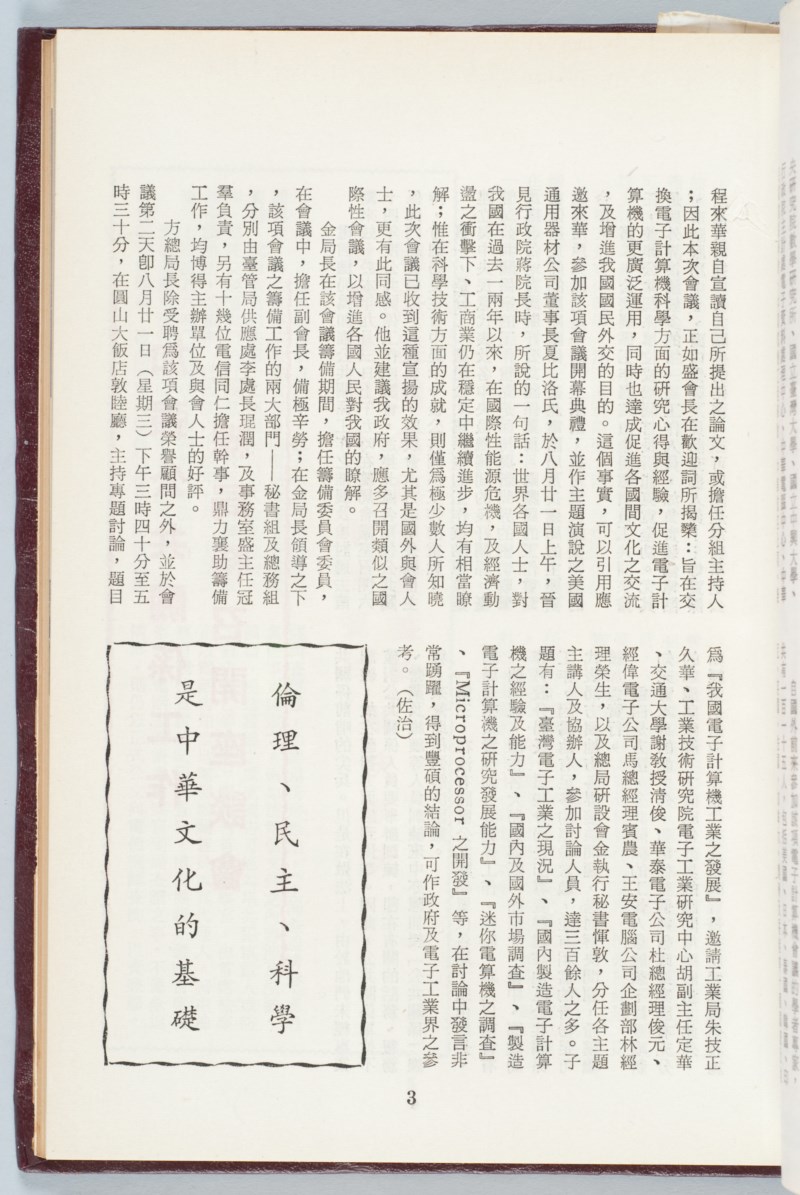 程來華親自宣讀自己所提出之論文，或擔任分組主持人
；因此本次會議，正如盛會長在歡迎詞所揭櫫：旨在交
換電子計算機科學方面的研究心得與經驗，促進電子計
算機的更廣泛運用，同時也達成促進各國間文化之交流
，及增進我國國民外交的目的。這個事實，可以引用應
邀來華，參加該項會議開幕典禮，並作主題演說之美國
通用器材公司董事長夏比洛氏，於八月廿一日上午，晉
見行政院蔣院長時，所說的一句話：世界各國人士，對
我國在過去一兩年以來，在國際性能源危機，及經濟動
盪之衝擊下、工商業仍在穩定中繼續進步，均有相當瞭
解；惟在科學技術方面的成就，則僅爲極少數人所知曉
，此次會議已收到這種宣揚的效果，尤其是國外與會人
士，更有此同感。他並建議我政府，應多召開類似之國
際性會議，以增進各國人民對我國的瞭解。
金局長在該會議籌備期間，擔任籌備委員會委員，
在會議中，擔任副會長，備極辛勞；在金局長領導之下
，該項會議之籌備工作的兩大部門——秘書組及總務組
，分別由臺管局供應處李處長琨潤，及事務室盛主任冠
羣負責，另有十幾位電信同仁擔任幹事，鼎力襄助籌備
工作，均博得主辦單位及與會人士的好評。
方總局長除受聘爲該項會議榮譽顧問之外，並於會
議第二天卽八月廿一日（星期三）下午三時四十分至五
時三十分，在圓山大飯店敦睦廳，主持專題討論，題目
爲『我國電子計算機工業之發展』，邀請工業局朱技正
久華、工業技術研究院電子工業研究中心胡副主任定華
、交通大學謝敎授清俊、華泰電子公司杜總經理俊元、
經偉電子公司馬總經理賓農、王安電腦公司企劃部林經
理榮生，以及總局研設會金執行秘書惲敦，分任各主題
主講人及協辦人，參加討論人員，達三百餘人之多。子
題有：『臺灣電子工業之現況』、『國內製造電子計算
機之經驗及能力』、『國內及國外市場調查』、『製造
電子計算機之研究發展能力』、『迷你電算機之調查』
、『Microprocessor 之開發』等，在討論中發言非
常踴躍，得到豐碩的結論，可作政府及電子工業界之參
考。（佐治）
倫理、民主、科學
是中華文化的基礎
3